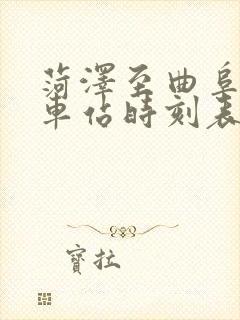 菏澤至曲阜
車佔時刻表
寶拉